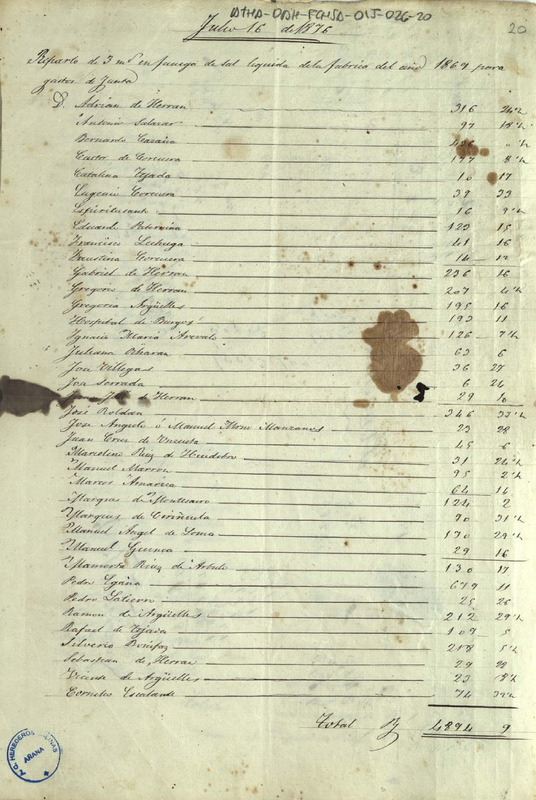 ATHA-DAH-FGHSA-015-026-20
20
Julio 16 de 1876
Reparto de 3 mrs en fanega de sal liquida de la fabrica del año 1867 para
gastos de Junta
D. Adrian de Herran 316
Antonio Salazar 97 18 ½
Bernardo
Castor de Corcuera 197 8 ½
Catalina Tejada 10 17
Eugenio Corcuera 32 33
Espiritusanto 16 9 ½
Eduardo 123 15
Francisco Lechuga 41 16
Faustina Corcuera 14 12
Gabriel de Herran 236 16
Gregorio de Herran 207 4 ½
Gregoria Argüelles 195 16
Hospital de Burgos 193 11
Ignacio Maria Arevalo 126 7 ½
Juliana 63 6
Jose Villegas 36 27
Jose Serrada 6 26
de Herran 29 16
José Roldan 346 33 ½
Jose Angulo ó Manuel Manzanos 23 28
Juan Cruz de 45 6
Marcelino Ruiz de Huidobro 31 24 ½
Manuel Marron 95 2 ½
Marcos 64 16
Marques de Montesano 124 2
Marques de 90 31 ½
Manuel Angel de 170 29 ½
Manuel 29 16
Mamerta Ruiz de 130 17
Pedro Egaña 679 11
Pedro 25 26
Ramon de Argüelles 212 29 ½
Rafael de Tejada 107 5
Silverio 218 5 ½
Sebastian de Herran 29
Vicente de Argüelles 23
Cornelio Escalante 74
Total 4894 9
HEREDEROS
AÑANA